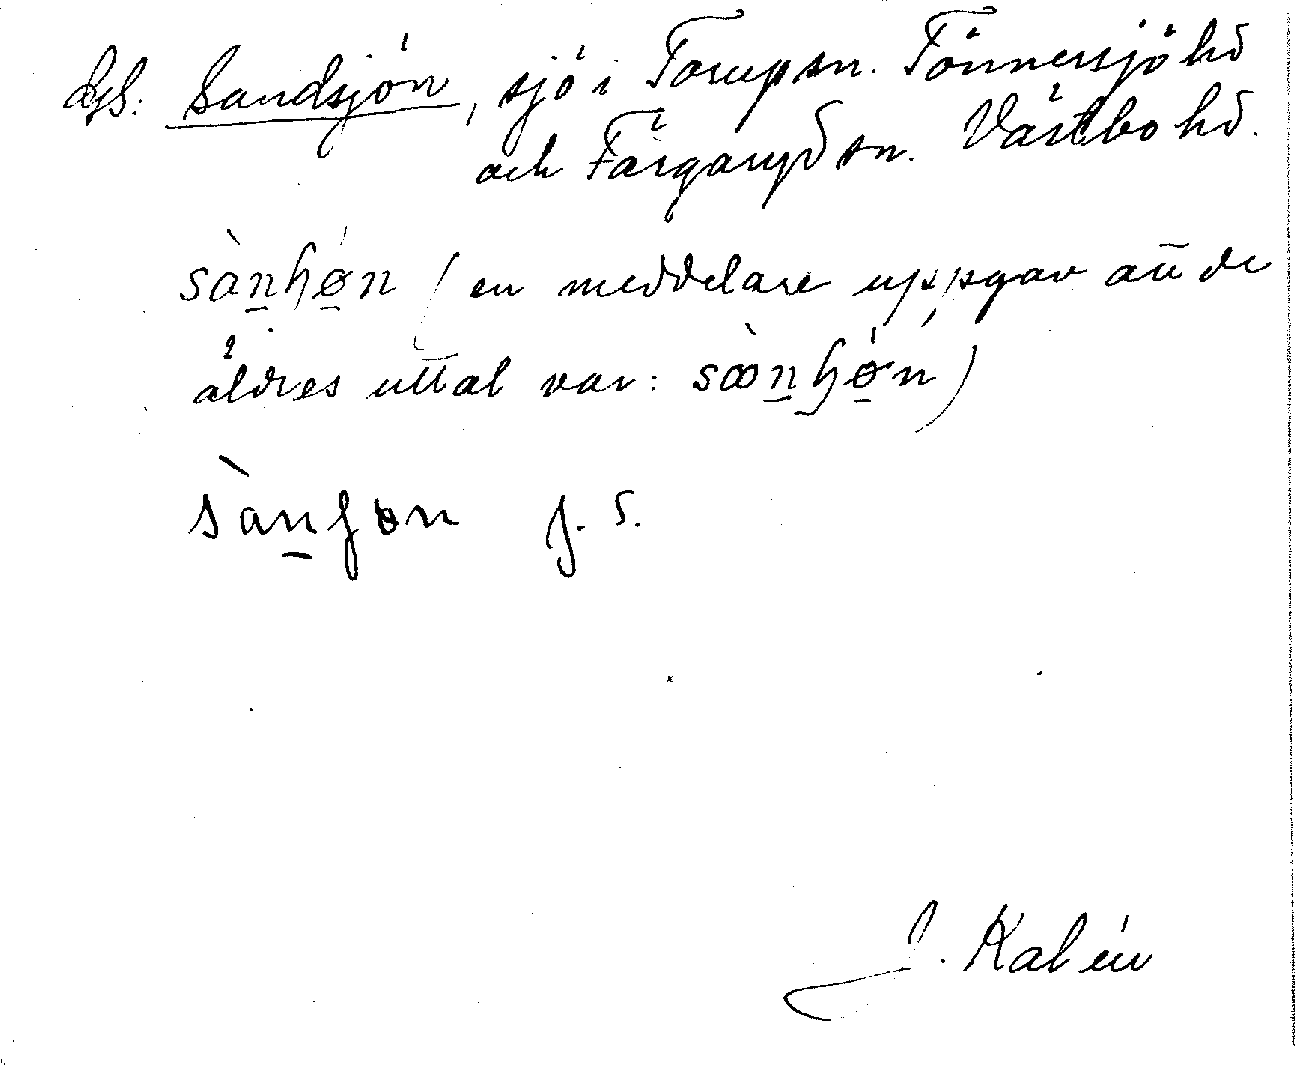 Sandsjön, sjö i Torup sn. Tönnersjö hd
och Färgaryd sn. Västbo hd.
sànhø̀n (en meddelare uppgav att de
äldres uttal var: sòònhø̀n)
sànhøn f. s.
J. Kalén